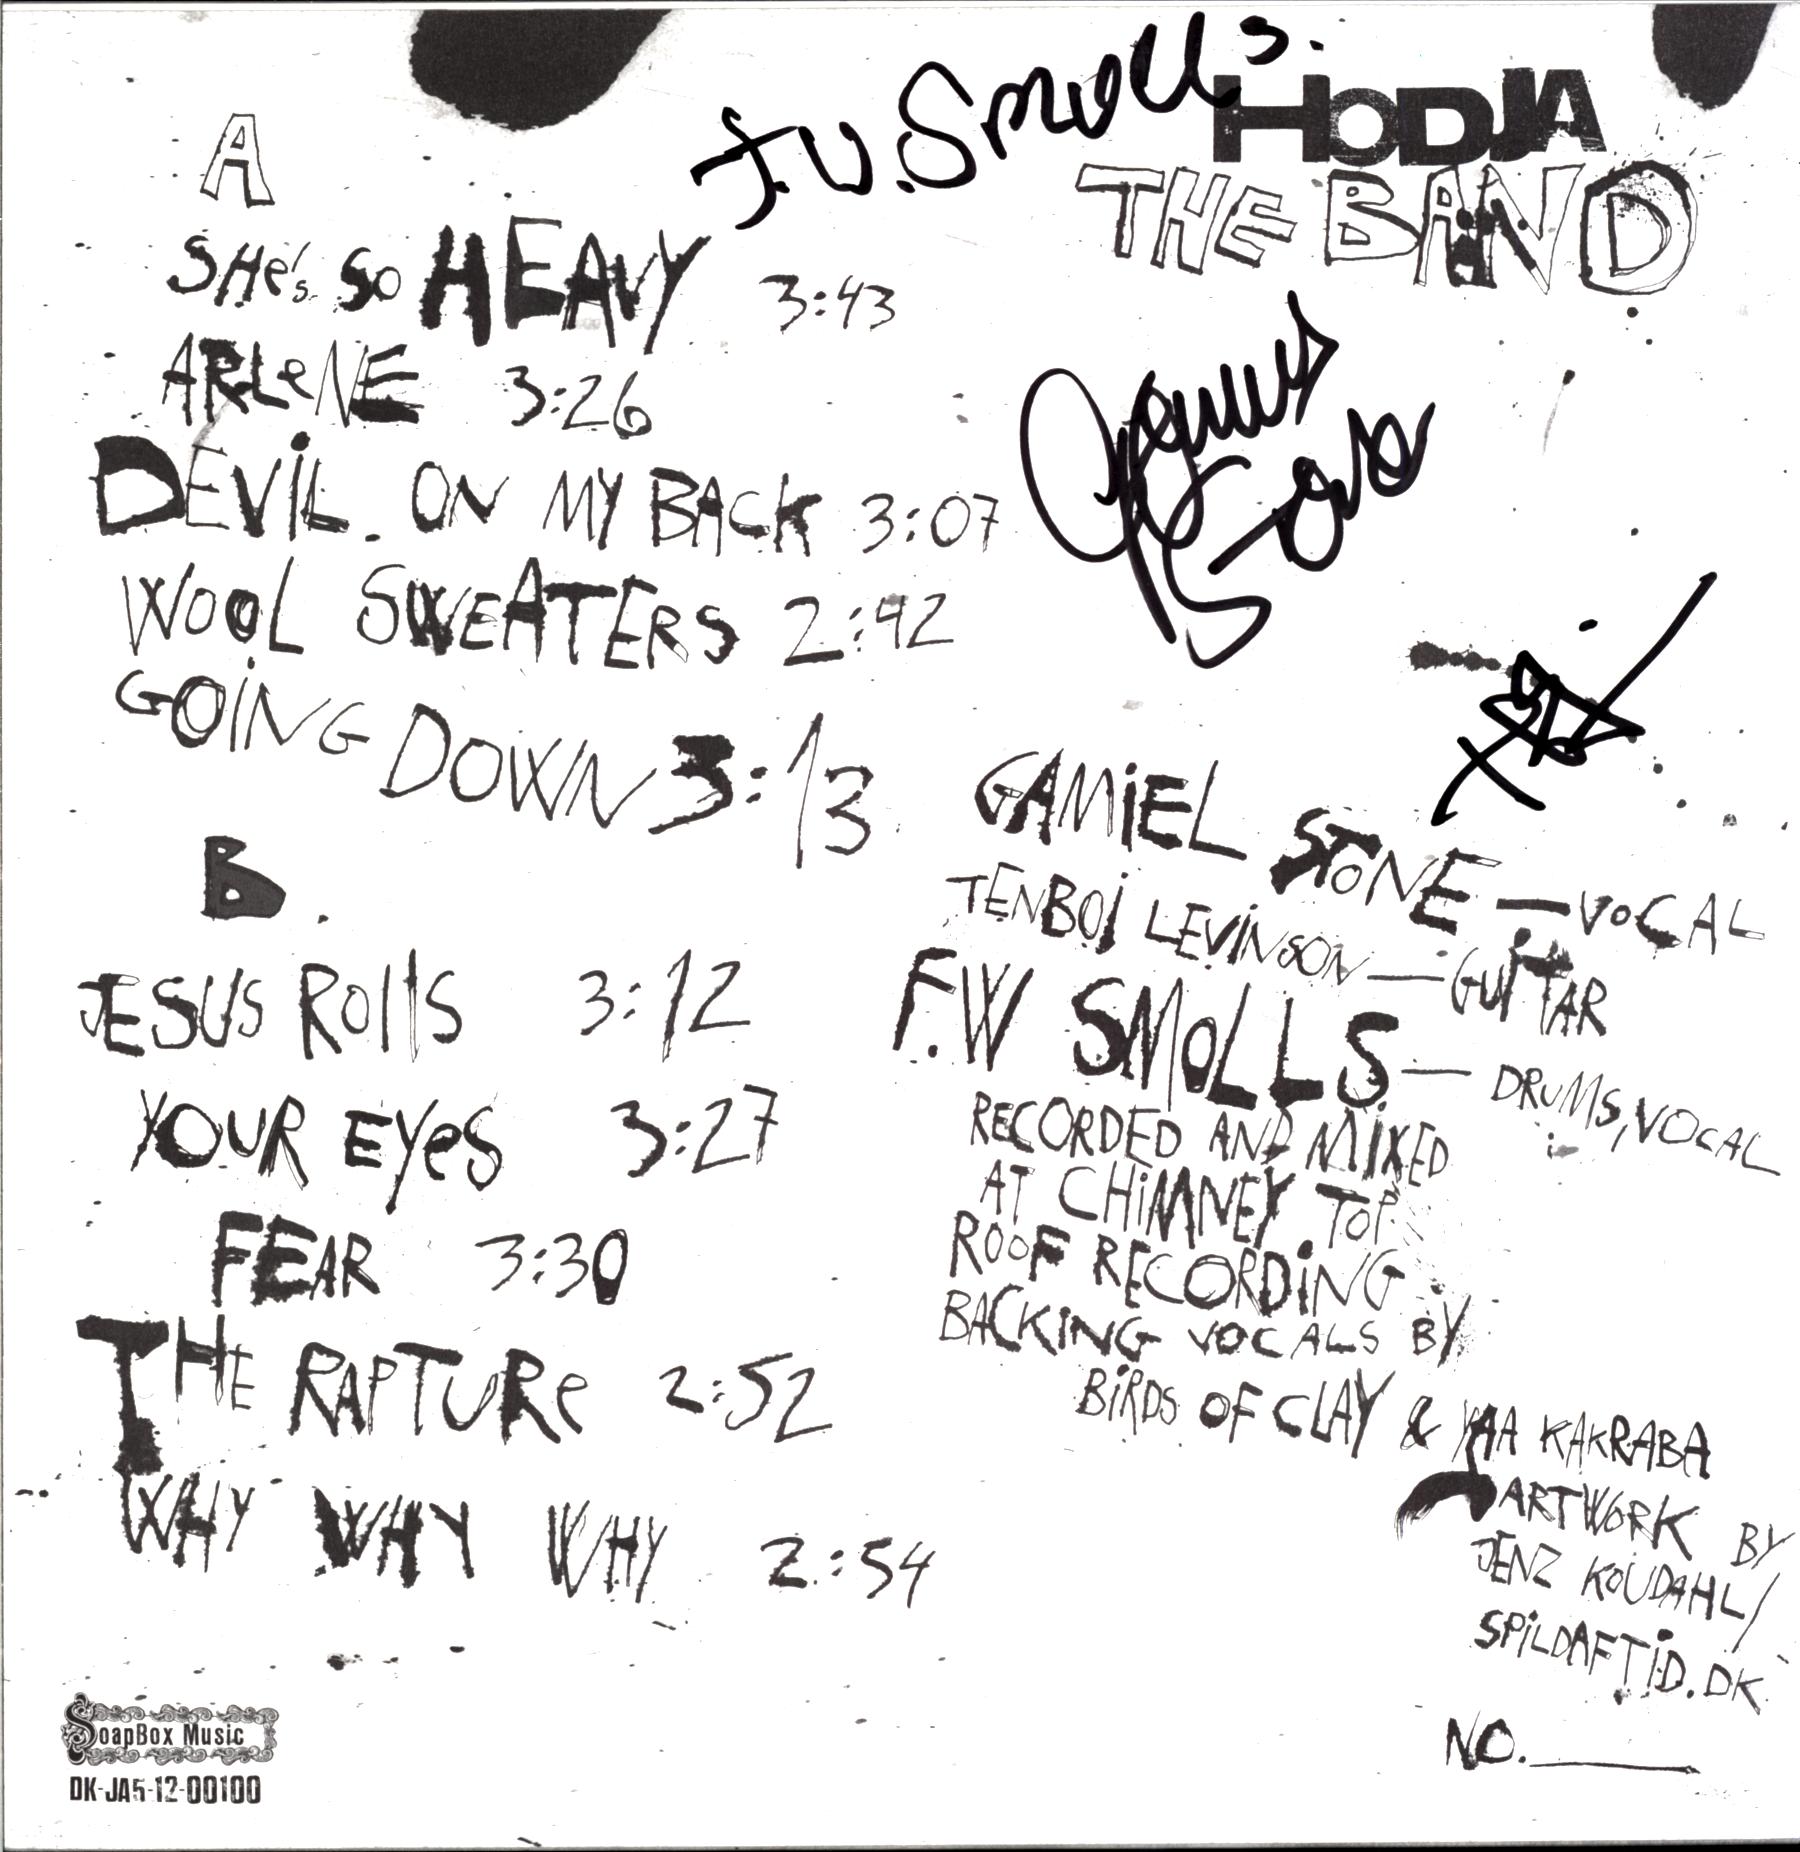 A
SHe's So HEAVY 3:43
ARLeNE 3:26
DEVIL. ON MY BACK 3:07
WOOL SWEATERS 2:42
GOING DOWN 3:13
B.
JESUS Rolls 3:12
YOUR EYeS 3:27
FEAR 3:30
THE RAPTURe 2:52
WHY WHY WHY 2:54
SoapBox Music
DK-JA5-12-00100
F.W. Smolls.
HODJA
THE BAND
GAMiEL STONE — VOCAL
TENBOi LEViNSON — GUiTAR
F.W SMOLLS — DRUMS, VOCAL
RECORDED AND MiXED
AT CHiMNEY TOP
ROOF RECORDiNG
BACKING VOCALS BY
BiRDS OF CLAY & YAA KAKRABA
ARTWORK BY
JENZ KOUDAHL/
SPiLDAFTiD.DK
NO.